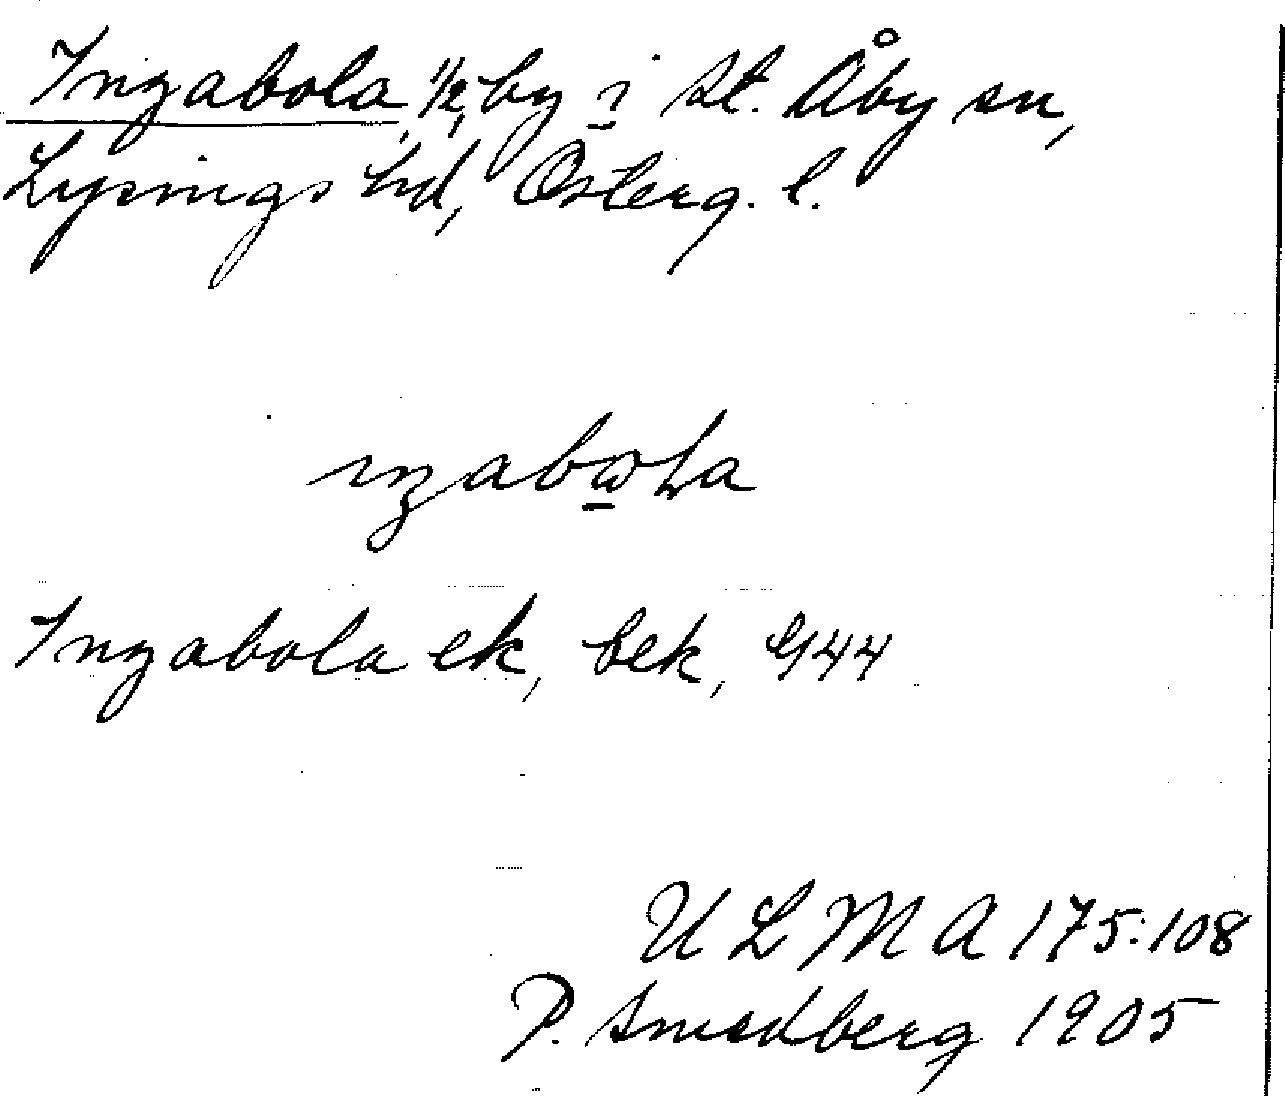 Ingabola, 1/2, by i St. Åby sn,
Lysings hd, Österg. l.
Ingabola ek, bek, 944
ULMA 175:108
P. Smedberg 1905